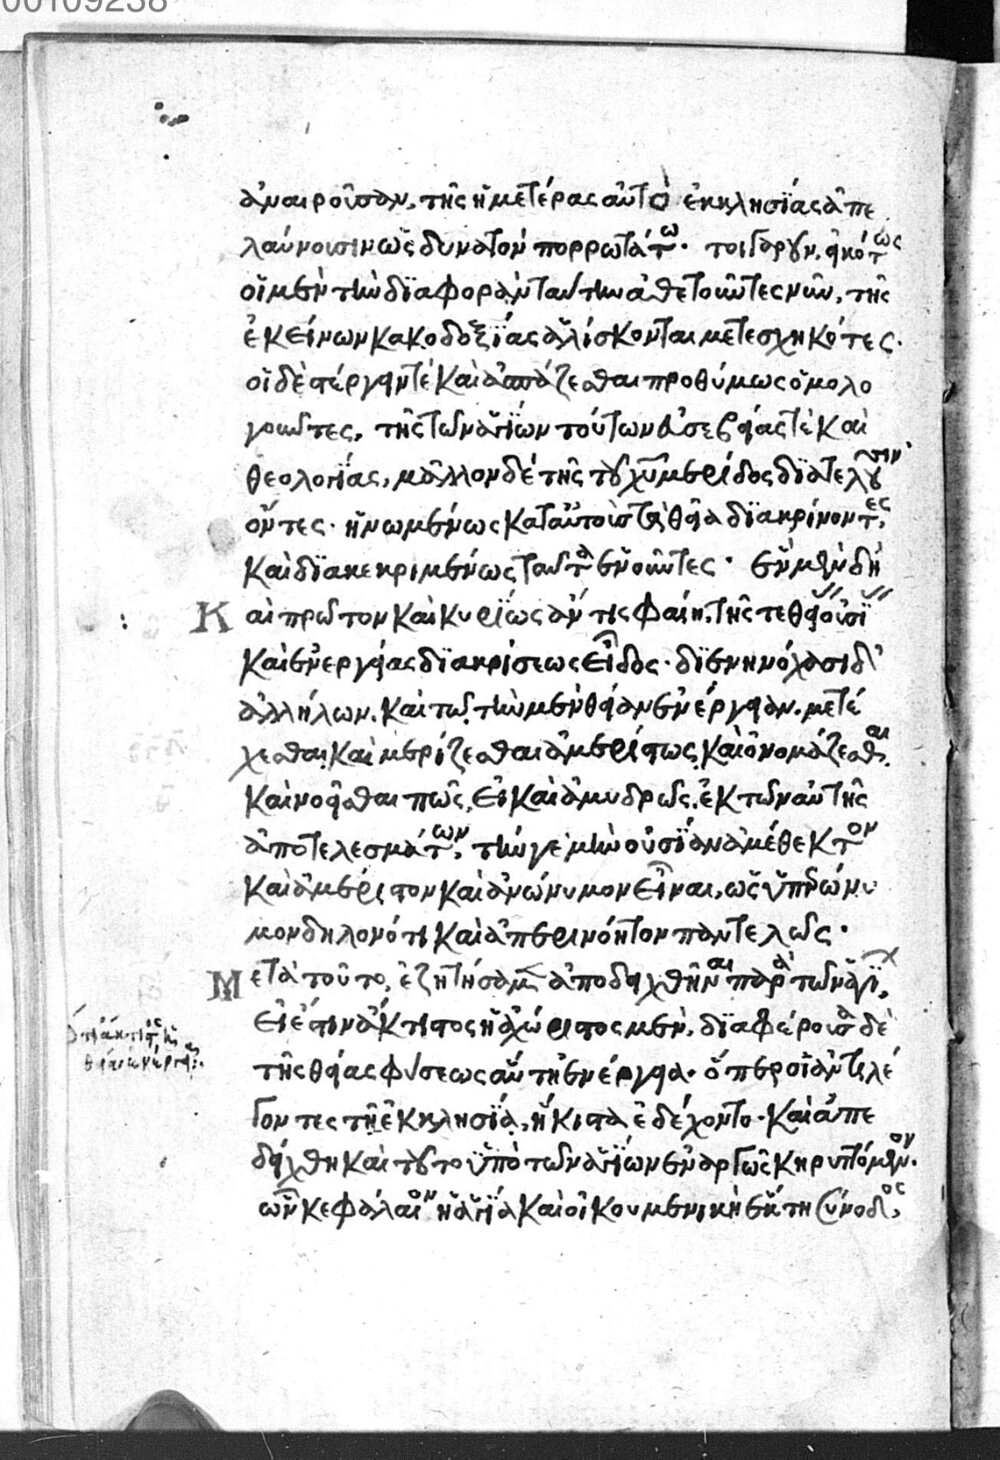 00109238
ἀναιροῦσαν, τῆς ἡμετέρας αὐτὸ ἐκκλησίας ἀπε
λαύνουσιν ὡς δυνατὸν πορρωτάτω. τοιγαροῦν, εἰκότως
οἱ μὲν τὴν διαφορὰν ταύτην ἀθετοῦντες νῦν, τῆς
ἐκείνων κακοδοξίας ἁλίσκονται μετεσχηκότες.
οἱ δὲ στέργειν τὲ καὶ ἀσπάζεσθαι προθύμως ὁμολο
γοῦντες, τῆς τῶν ἁγίων τούτων εὐσεβείας τὲ καὶ
θεολογίας, μᾶλλον δὲ τῆς τοῦ χυ μερίδος διατελοῦσιν
ὄντες. ἡνωμένως κατ' αὐτοὺς τὰ θεῖα διακρίνοντες,
καὶ διακεκριμένως ταῦτα ἑνοῦντες. ἓν μὲν δὴ
Καὶ πρῶτον καὶ κυρίως ἄν τις φαίη, τῆς τε θείας οὐσίας
καὶ ἐνεργείας διακρίσεως εἶδος. διενηνόχασι δ'
ἀλλήλων, καὶ τῶ, τὴν μὲν θείαν ἐνέργειαν, μετέ
χεσθαι, καὶ μερίζεσθαι ἀμερίστως, καὶ ὀνομάζεσθαι,
καὶ νοεῖσθαι πῶς, εἰ καὶ ἀμυδρῶς, ἐκ τῶν αὐτῆς
ἀποτελεσμάτων, τήν γε μὴν οὐσίαν ἀμέθεκτον
καὶ ἀμέριστον καὶ ἀνώνυμον εἶναι, ὡς ὑπερώνυ
μον δηλονότι καὶ ἀπερινόητον παντελῶς.
Μετὰ τοῦτο, ἐζητήσαμεν ἀποδειχθῆναι παρὰ τῶν ἁγίων,
εἰ ἔστιν ἄκτιστος ἢ ἀχώριστος μὲν, διαφέρουσα δὲ
τῆς θείας φύσεως αὕτη ἡ ἐνέργεια. ὅπερ οἱ ἀντιλέ
γοντες τῇ ἐκκλησίᾳ, ἥκιστα ἐδέχοντο. καὶ ἀπε
δείχθη καὶ τοῦτο ὑπὸ τῶν ἁγίων ἐναργῶς κηρυττόμενον.
ὧν κεφάλαιον ἡ ἁγία καὶ οἰκουμενικὴ ἕκτη σύνοδος,
ὅτι ἄκτιστος ἡ
θεία ἐνέργεια: